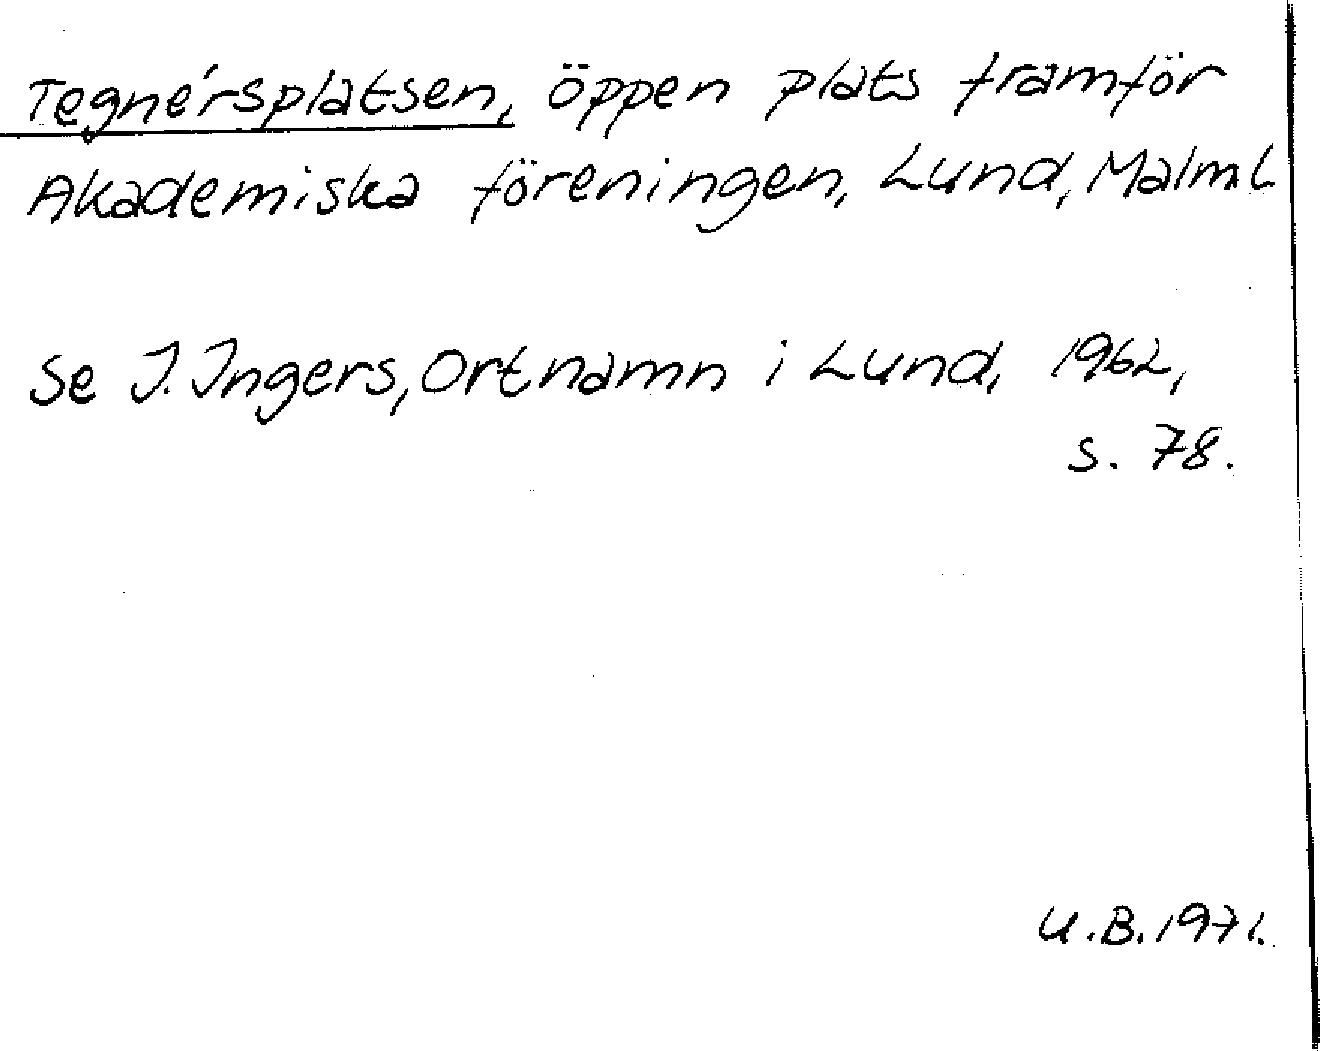 Tegnérsplatsen, öppen plats framför
Akademiska föreningen, Lund, Malm.L
Se I. Ingers, Ortnamn i Lund, 1962,
s. 78.
U.B. 1971.